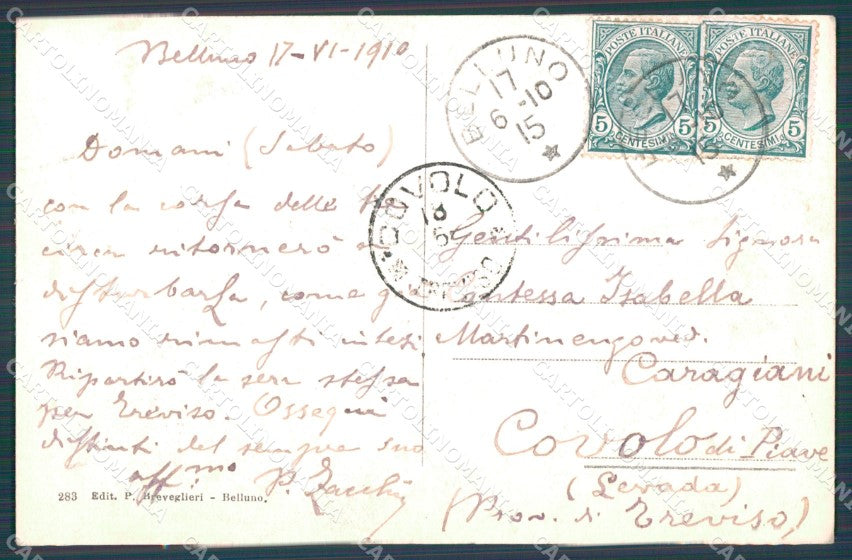 Belluno 17-VI-1910
Domani (Sabato)
con la corsa delle
circa ritornerò a
disturbarla, come
siamo rimasti intesi
Ripartirò la sera stessa
per Treviso. Ossequi
distinti del sempre suo
aff.mo P. Zacchi
283 Edit. P. Breveglieri - Belluno.
BELLUNO
17
6-10
15
COVOLO
18
POSTE ITALIANE
5 CENTESIMI 5
POSTE ITALIANE
5 CENTESIMI 5
Gentilissima Signora
Contessa Isabella
Martinengo ved.
Caragiani
Covolo di Piave
(Levada)
(Prov. di Treviso)
CARTOLINOMANIA